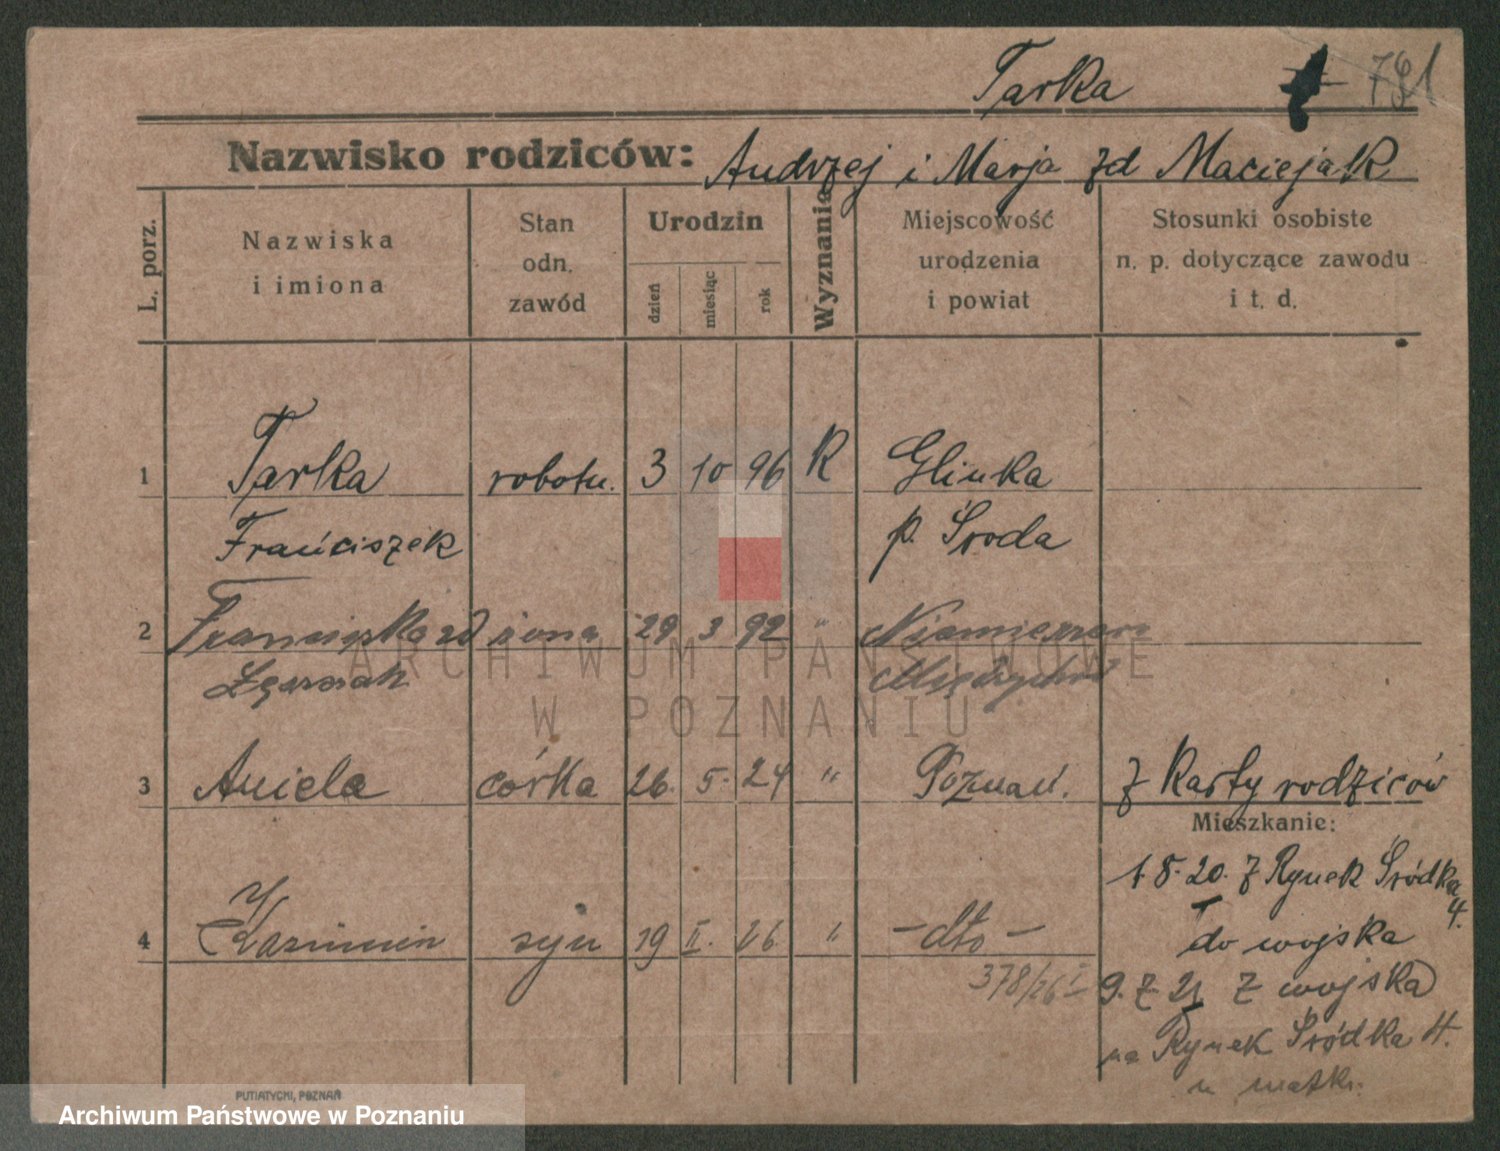 Tarka 791
Nazwisko rodziców: Andrzej i Marja zd Maciejak
L. porz.
Nazwiska
i imiona
Stan
odn.
zawód
Urodzin
dzień
miesiąc
rok
Wyznania
Miejscowość
urodzenia
i powiat
Stosunki osobiste
n. p. dotyczące zawodu
i t. d.
1 Tarka robotn. 3 10 96 K Glinka
Franciszek p. Środa
2 Franciszka zd żona 29 3 92 "
Międzychód
3 Aniela córka 26. 5. 24 " Poznań. z Karty rodziców
Mieszkanie:
1. 8. 20. z Rynek Śródka 4.
4 Kazimierz syn 19 II. 26. " - dto - do wojska
378/26 I 9. Z 21 z wojska
na Rynek Śródka 4.
u matki.
PUTIATYCKI, POZNAŃ
ARCHIWUM PAŃSTWOWE
W POZNANIU
Archiwum Państwowe w Poznaniu